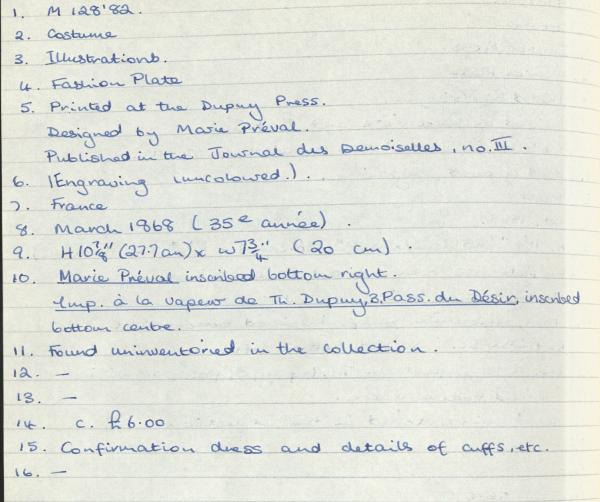 1. M 128'82.
2. Costume
3. Illustrations.
4. Fashion Plate
5. Printed at the Dupuy Press.
Designed by Marie Préval.
Published in the Journal des Demoiselles, no. III.
6. (Engraving (uncoloured.).
7. France
8. March 1868 (35e année).
9. H 10 7/8" (27.7cm) x w 7 3/4" (20 cm).
10. Marie Préval inscribed bottom right.
Imp. à la vapeur de Th. Dupuy, 3, Pass. du Désir, inscribed
bottom centre.
11. Found uninventoried in the collection.
12. –
13. –
14. c. £6.00
15. Confirmation dress and details of cuffs, etc.
16. –